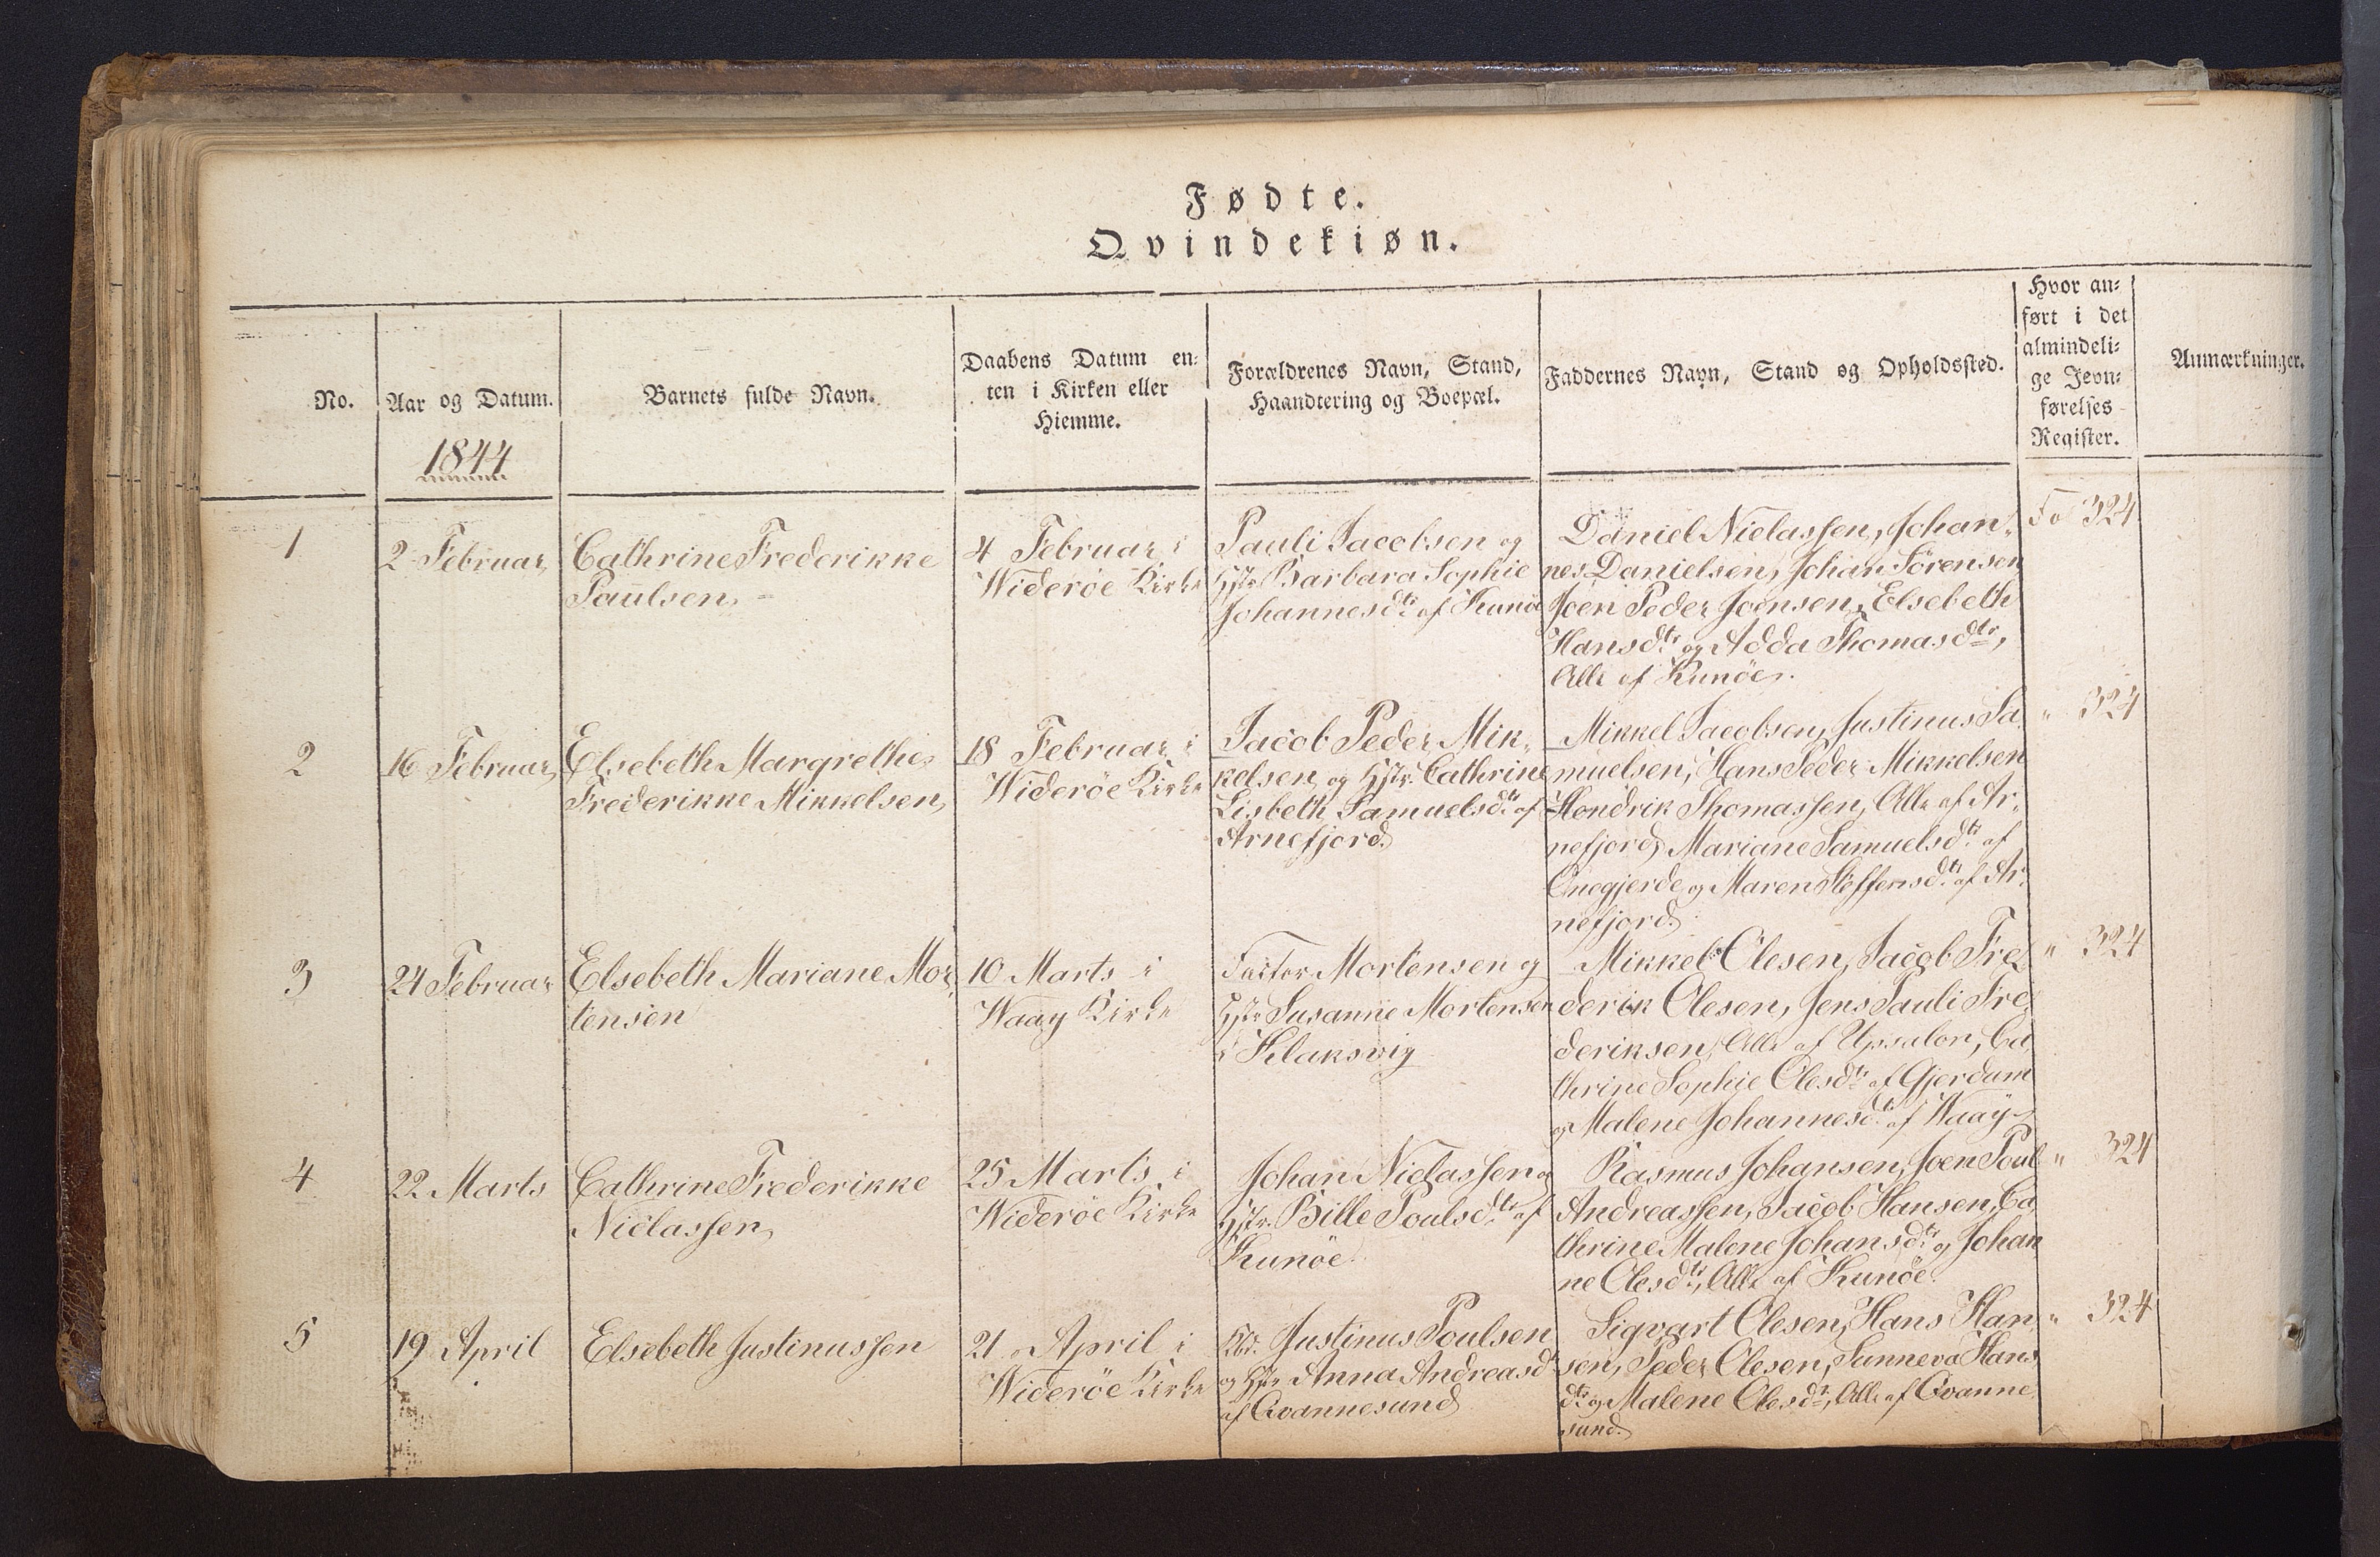 Fødte.
Qvindekiøn.
No.
Aar og Datum.
1844
Barnets fulde Navn.
Daabens Datum en-
ten i Kirken eller
Hiemme.
Forældrenes Navn, Stand,
Haandtering og Boepæl.
Faddernes Navn, Stand og Opholdssted.
Hvor an-
ført i det
almindeli-
ge Jevn-
førelses
Register.
Anmærkninger.
1
2 Februar,
Cathrine Frederikke
Paulsen,
4 Februar i
Widerøe Kirke
Pauli Jacobsen og
Hstr. Barbara Sophie
Johannesdtr af Kunøe
Daniel Niclassen, Johan-
nes Danielsen, Johan Sørensen
Joen Peder Joensen, Elsebeth
Hansdtr og Adda Thomasdtr,
Alle af Kunøe.
Fo 324
2
16 Februar,
Elsebeth Margrethe
Frederikke Mikkelsen,
18 Februar i
Widerøe Kirke
Jacob Peder Mik-
kelsen og Hstr. Cathrine
Lisbeth Samuelsdtr af
Arnefjord
Mikkel Jacobsen, Justinus Sa-
muelsen, Hans Peder Mikkelsen
Hendrik Thomassen, Alle af Ar-
nefjord, Mariane Samuelsdtr af
Ønegjerde og Maren Steffensdtr af Ar-
nefjord
" 324
3
24 Februar
Elsebeth Mariane Mor-
tensen
10 Marts i
Waag Kirke
Factor Mortensen og
Hstr Susanne Mortensen
i Klaksvig
Mikkel Olesen, Jacob Fre-
derik Olesen, Jens Pauli Fre-
deriksen, Alle af Upsalon, Ca-
thrine Sophie Olesdtr af Gjerdum
og Malene Johannesdtr af Waag
" 324
4
22 Marts
Cathrine Frederikke
Niclassen,
25 Marts i
Widerøe Kirke
Johan Niclassen og
Hstr. Bille Poulsdtr af
Kunøe
Rasmus Johansen, Joen Poul
Andreassen, Jacob Hansen, Ca-
thrine Malene Johansdtr og Johan
ne Olesdtr, Alle af Kunøe
" 324
5
19 April
Elsebeth Justinussen
21 April i
Widerøe Kirke
Justinus Poulsen
og Hstr Anna Andreasd
af Qvannesund
Sigvart Olesen, Hans Han-
sen, Peder Olesen, Sunneva Hans
dtr og Malene Olesdtr, Alle af Qvanne-
sund
" 324